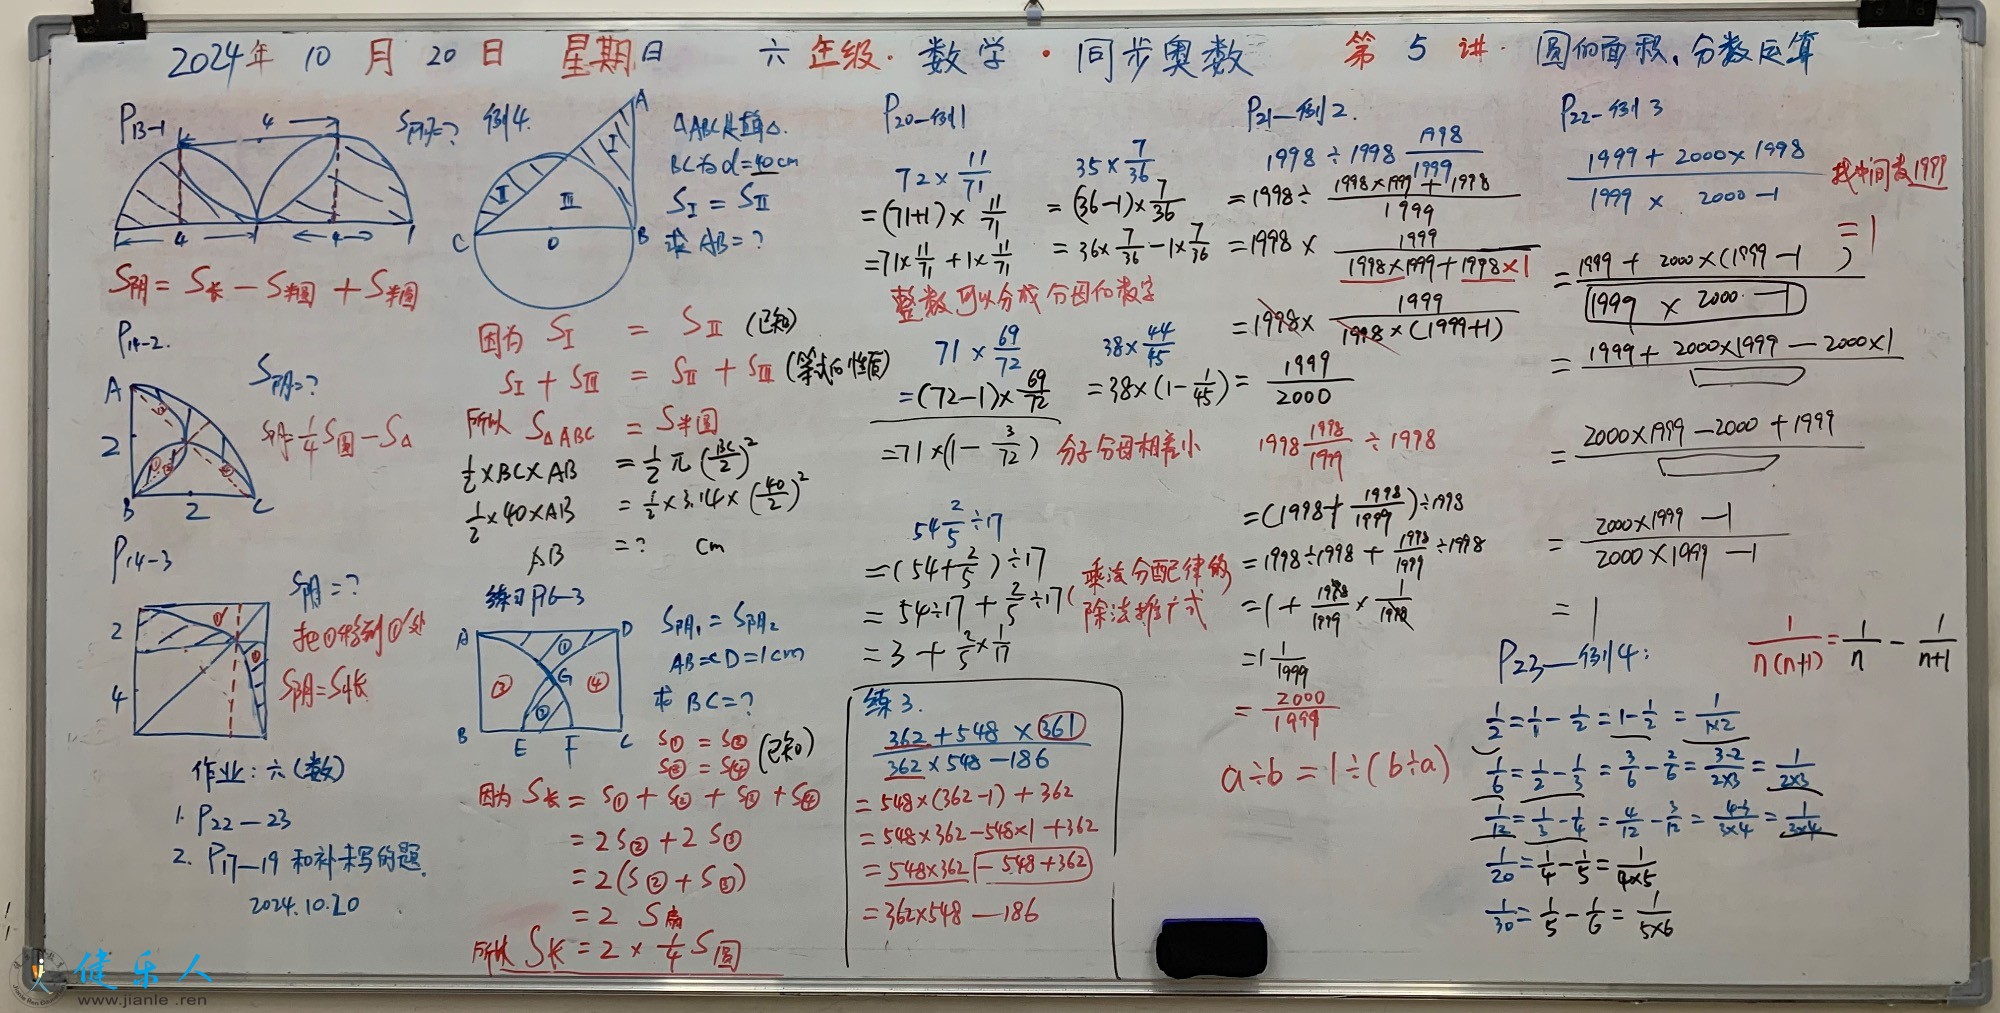 2024年 10 月 20 日 星期日 六年级·数学·同步奥数 第 5 讲·圆的面积、分数运算
P13-1
4
S阴=?
4
4
S阴 = S长 - S半圆 + S半圆
P14-2.
A
S阴=?
2
S阴=1/4 S圆 - S△
B 2 C
P14-3
2
4
S阴=?
把①移到①'处
S阴=S长
作业:六(数)
1. P22—23
2. P17—19 和补未写的题.
2024.10.20
例4.
A
I
II
III
C O B
△ABC是直角△.
BC为d=40cm
SI = SII
求 AB=?
因为 SI = SII (已知)
SI + SIII = SII + SIII (等式的性质)
所以 S△ABC = S半圆
1/2 × BC × AB = 1/2 π (BC/2)²
1/2 × 40 × AB = 1/2 × 3.14 × (40/2)²
AB = ? cm
练习P16-3
A D
① G ③ ④ ②
B E F C
S阴1 = S阴2
AB=CD=1cm
求 BC=?
S① = S② (已知)
S③ = S④
因为 S长 = S① + S② + S③ + S④
= 2S② + 2S③
= 2(S② + S③)
= 2 S扇
所以 S长 = 2 × 1/4 S圆
P20—例1
72 × 11/71
=(71+1) × 11/71
=71×11/71 + 1×11/71
35 × 7/36
= (36-1)×7/36
= 36×7/36 - 1×7/36
整数可以分成分母的数字
71 × 69/72
=(72-1)×69/72
=71×(1- 3/72)
38×44/45
=38×(1- 1/45)
分子分母相差小
54 2/5 ÷17
=(54+2/5)÷17
= 54÷17 + 2/5÷17
= 3 + 2/5×1/17
(乘法分配律的
除法推广式)
练3.
362+548 × 361
362 × 548 - 186
= 548×(362-1) + 362
= 548×362-548×1+362
= 548×362 - 548+362
= 362×548 — 186
P21—例2.
1998 ÷ 1998 1998/1999
=1998÷ (1998×1999+1998)/1999
=1998 × 1999/(1998×1999+1998×1)
=1998× 1999/(1998×(1999+1))
= 1999/2000
1998 1998/1999 ÷ 1998
=(1998+1998/1999)÷1998
=1998÷1998 + 1998/1999÷1998
=1 + 1998/1999 × 1/1998
=1 1/1999
= 2000/1999
a÷b = 1÷(b÷a)
P22—例3
1999 + 2000×1998
1999 × 2000 -1
找中间数1999
=1
= 1999 + 2000×(1999-1)
1999 × 2000 -1
= 1999 + 2000×1999 - 2000×1
= 2000×1999 -2000 +1999
= 2000×1999 —1
2000×1999 —1
= 1
P23—例4:
1/n(n+1) = 1/n - 1/n+1
1/2=1/1-1/2=1-1/2=1/1×2
1/6=1/2-1/3=3/6-2/6=3-2/2×3=1/2×3
1/12=1/3-1/4=4/12-3/12=4-3/3×4=1/3×4
1/20=1/4-1/5=1/4×5
1/30=1/5-1/6=1/5×6
健乐人
www.jianle.ren